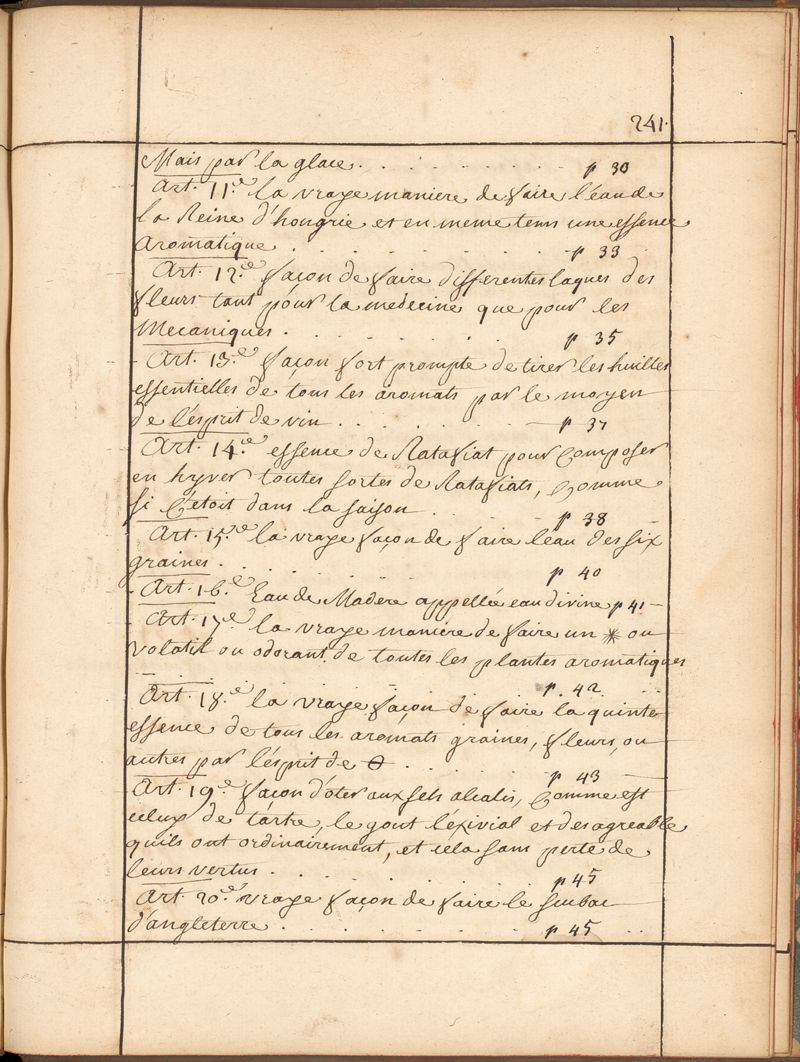 241.
Mais par la glace. . . . . . . . p 30
Art. 11.e la vraye maniere de faire l'eau de
la Reine d'hongrie et en meme tems une essence
aromatique . . . . . . . . p 33
Art. 12.e façon de faire differentes laques des
fleurs tant pour la medecine que pour les
Mecaniques . . . . . . . . p 35
Art. 13.e façon fort prompte de tirer les huilles
essentielles de tous les aromats par le moyen
de l'esprit de vin . . . . . . . p 37
Art. 14.e essence de Ratafiat pour Composer
en hyver toutes sortes de Ratafiats, Comme
si C'etoit dans la saison . . . . p 38
Art. 15.e la vraye façon de faire l'eau des six
graines . . . . . . . . p 40
Art. 16.e Eau de Madere appellée eau divine p 41 –
Art. 17.e la vraye maniére de faire un * ou
volatil ou odorant de toutes les plantes aromatiques
. . . . . . . . p. 42 . .
Art. 18.e la vraye façon de faire la quinte
essence de tous les aromats graines, fleurs, ou
autres par l'esprit de θ . . . . . . p 43
Art. 19.e façon d'oter aux sels alcalis, Comme est
celuy de tartre, le gout lexivial et desagreable
quils ont ordinairement, et cela sans perte de
leurs vertus . . . . . . . . p 45
Art. 20.e vraye façon de faire le scubac
d'angleterre . . . . . . . p 45 . .